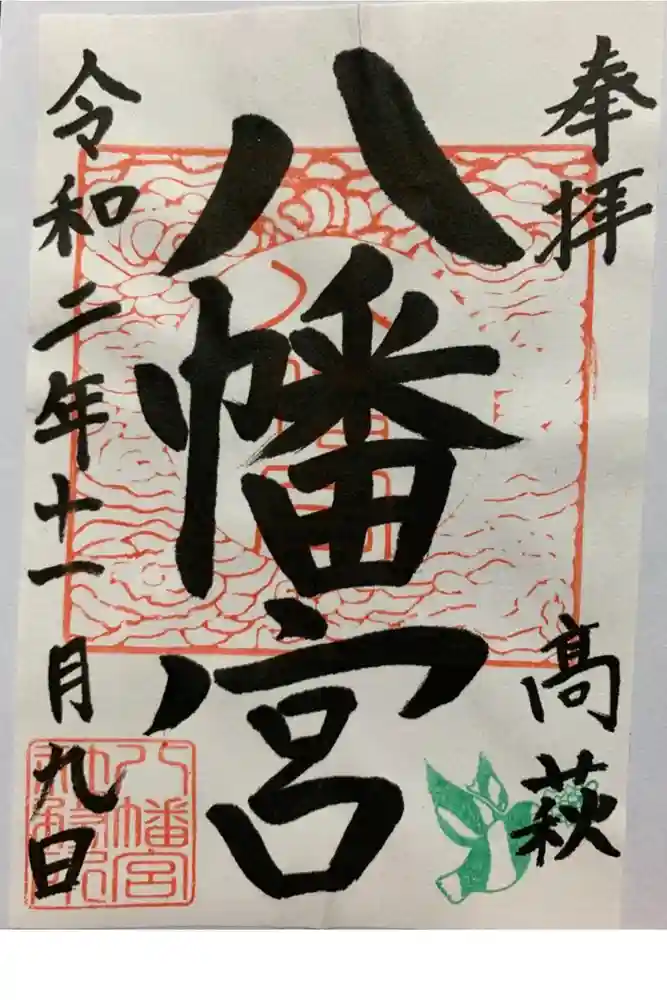 奉拝
高萩
八幡宮
令和二年十一月九日
八幡宮